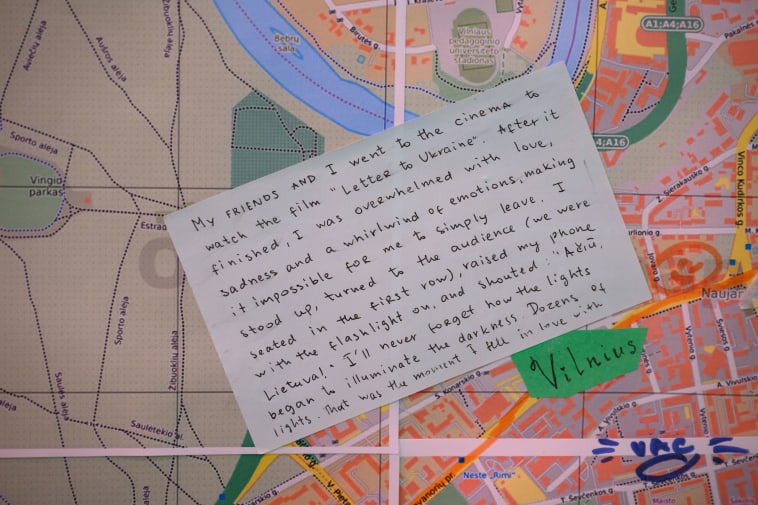 MY FRIENDS AND I went to the cinema to
watch the film "Letter to Ukraine". After it
finished, I was overwhelmed with love,
sadness and a whirlwind of emotions, making
it impossible for me to simply leave. I
stood up, turned to the audience (we were
seated in the first row), raised my phone
with the flashlight on, and shouted: "Ačiū,
Lietuva!." I'll never forget how the lights
began to illuminate the darkness. Dozens of
lights. That was the moment I fell in love with
Vilnius
VAC
Bebrų
sala
Birutės g.
Vilniaus
pedagoginio
universiteto
stadionas
A1;A4;A16
Pakalnės
Aušros alėja
Sporto alėja
Vingio
parkas
Estrad
Sporto alėja
Žibuoklių alėja
Saulės alėja
Saulėtekio al.
Z. Sierakausko g.
Vinco Kudirkos g.
Naujar
S. Konarskio g.
A. Vivulskio g.
Vytenio g.
Neste „Rimi"
T. Ševčenkos g.
Maisto